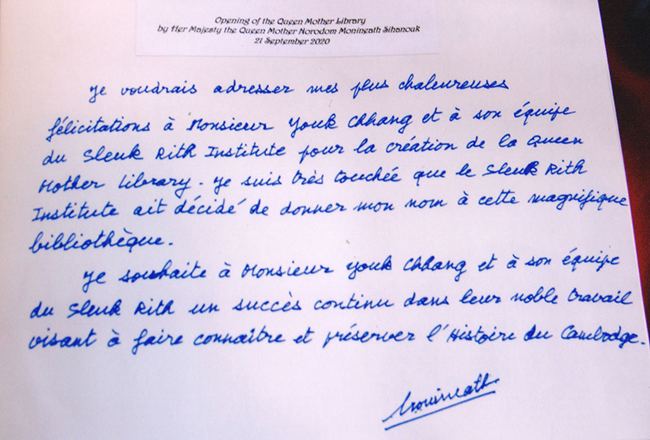 Opening of the Queen Mother Library
by Her Majesty the Queen Mother Norodom Monineath Sihanouk
21 September 2020
Je voudrais adresser mes plus chaleureuses
félicitations à Monsieur Youk Chhang et à son équipe
du Sleuk Rith Institute pour la création de la Queen
Mother Library. Je suis très touchée que le Sleuk Rith
Institute ait décidé de donner mon nom à cette magnifique
bibliothèque.
Je souhaite à Monsieur Youk Chhang et à son équipe
du Sleuk Rith un succès continu dans leur noble travail
visant à faire connaître et préserver l'Histoire du Cambodge.
Monineath